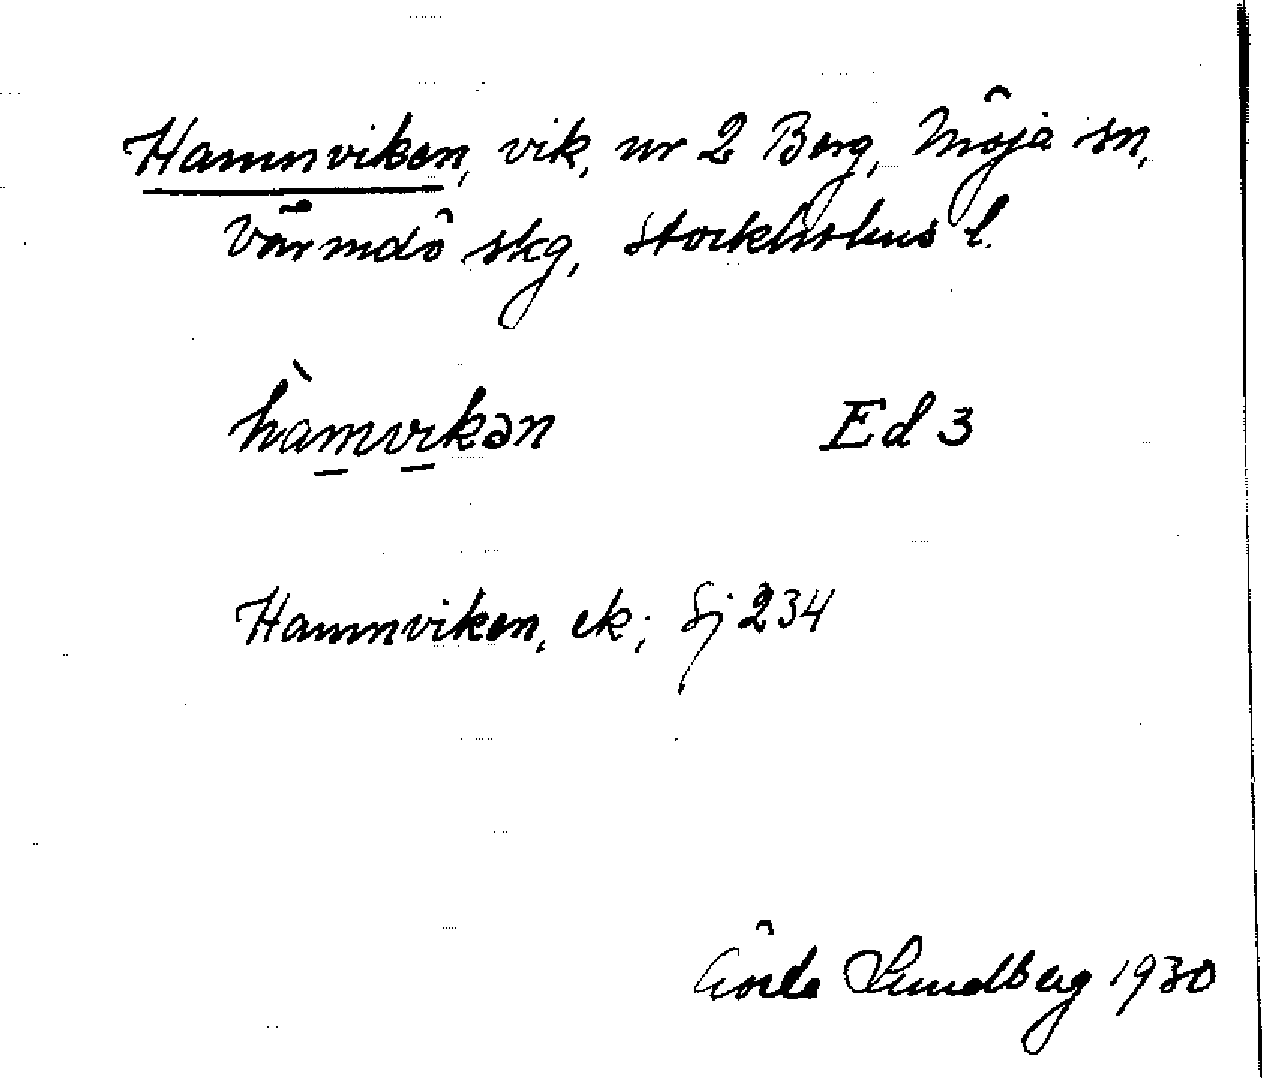 Hamnviken, vik, nr 2 Berg, Möja sn,
Värmdö skg, Stockholms l.
hàmvikən Ed 3
Hamnviken, ek; Sj 234
Gösta Sundberg 1930